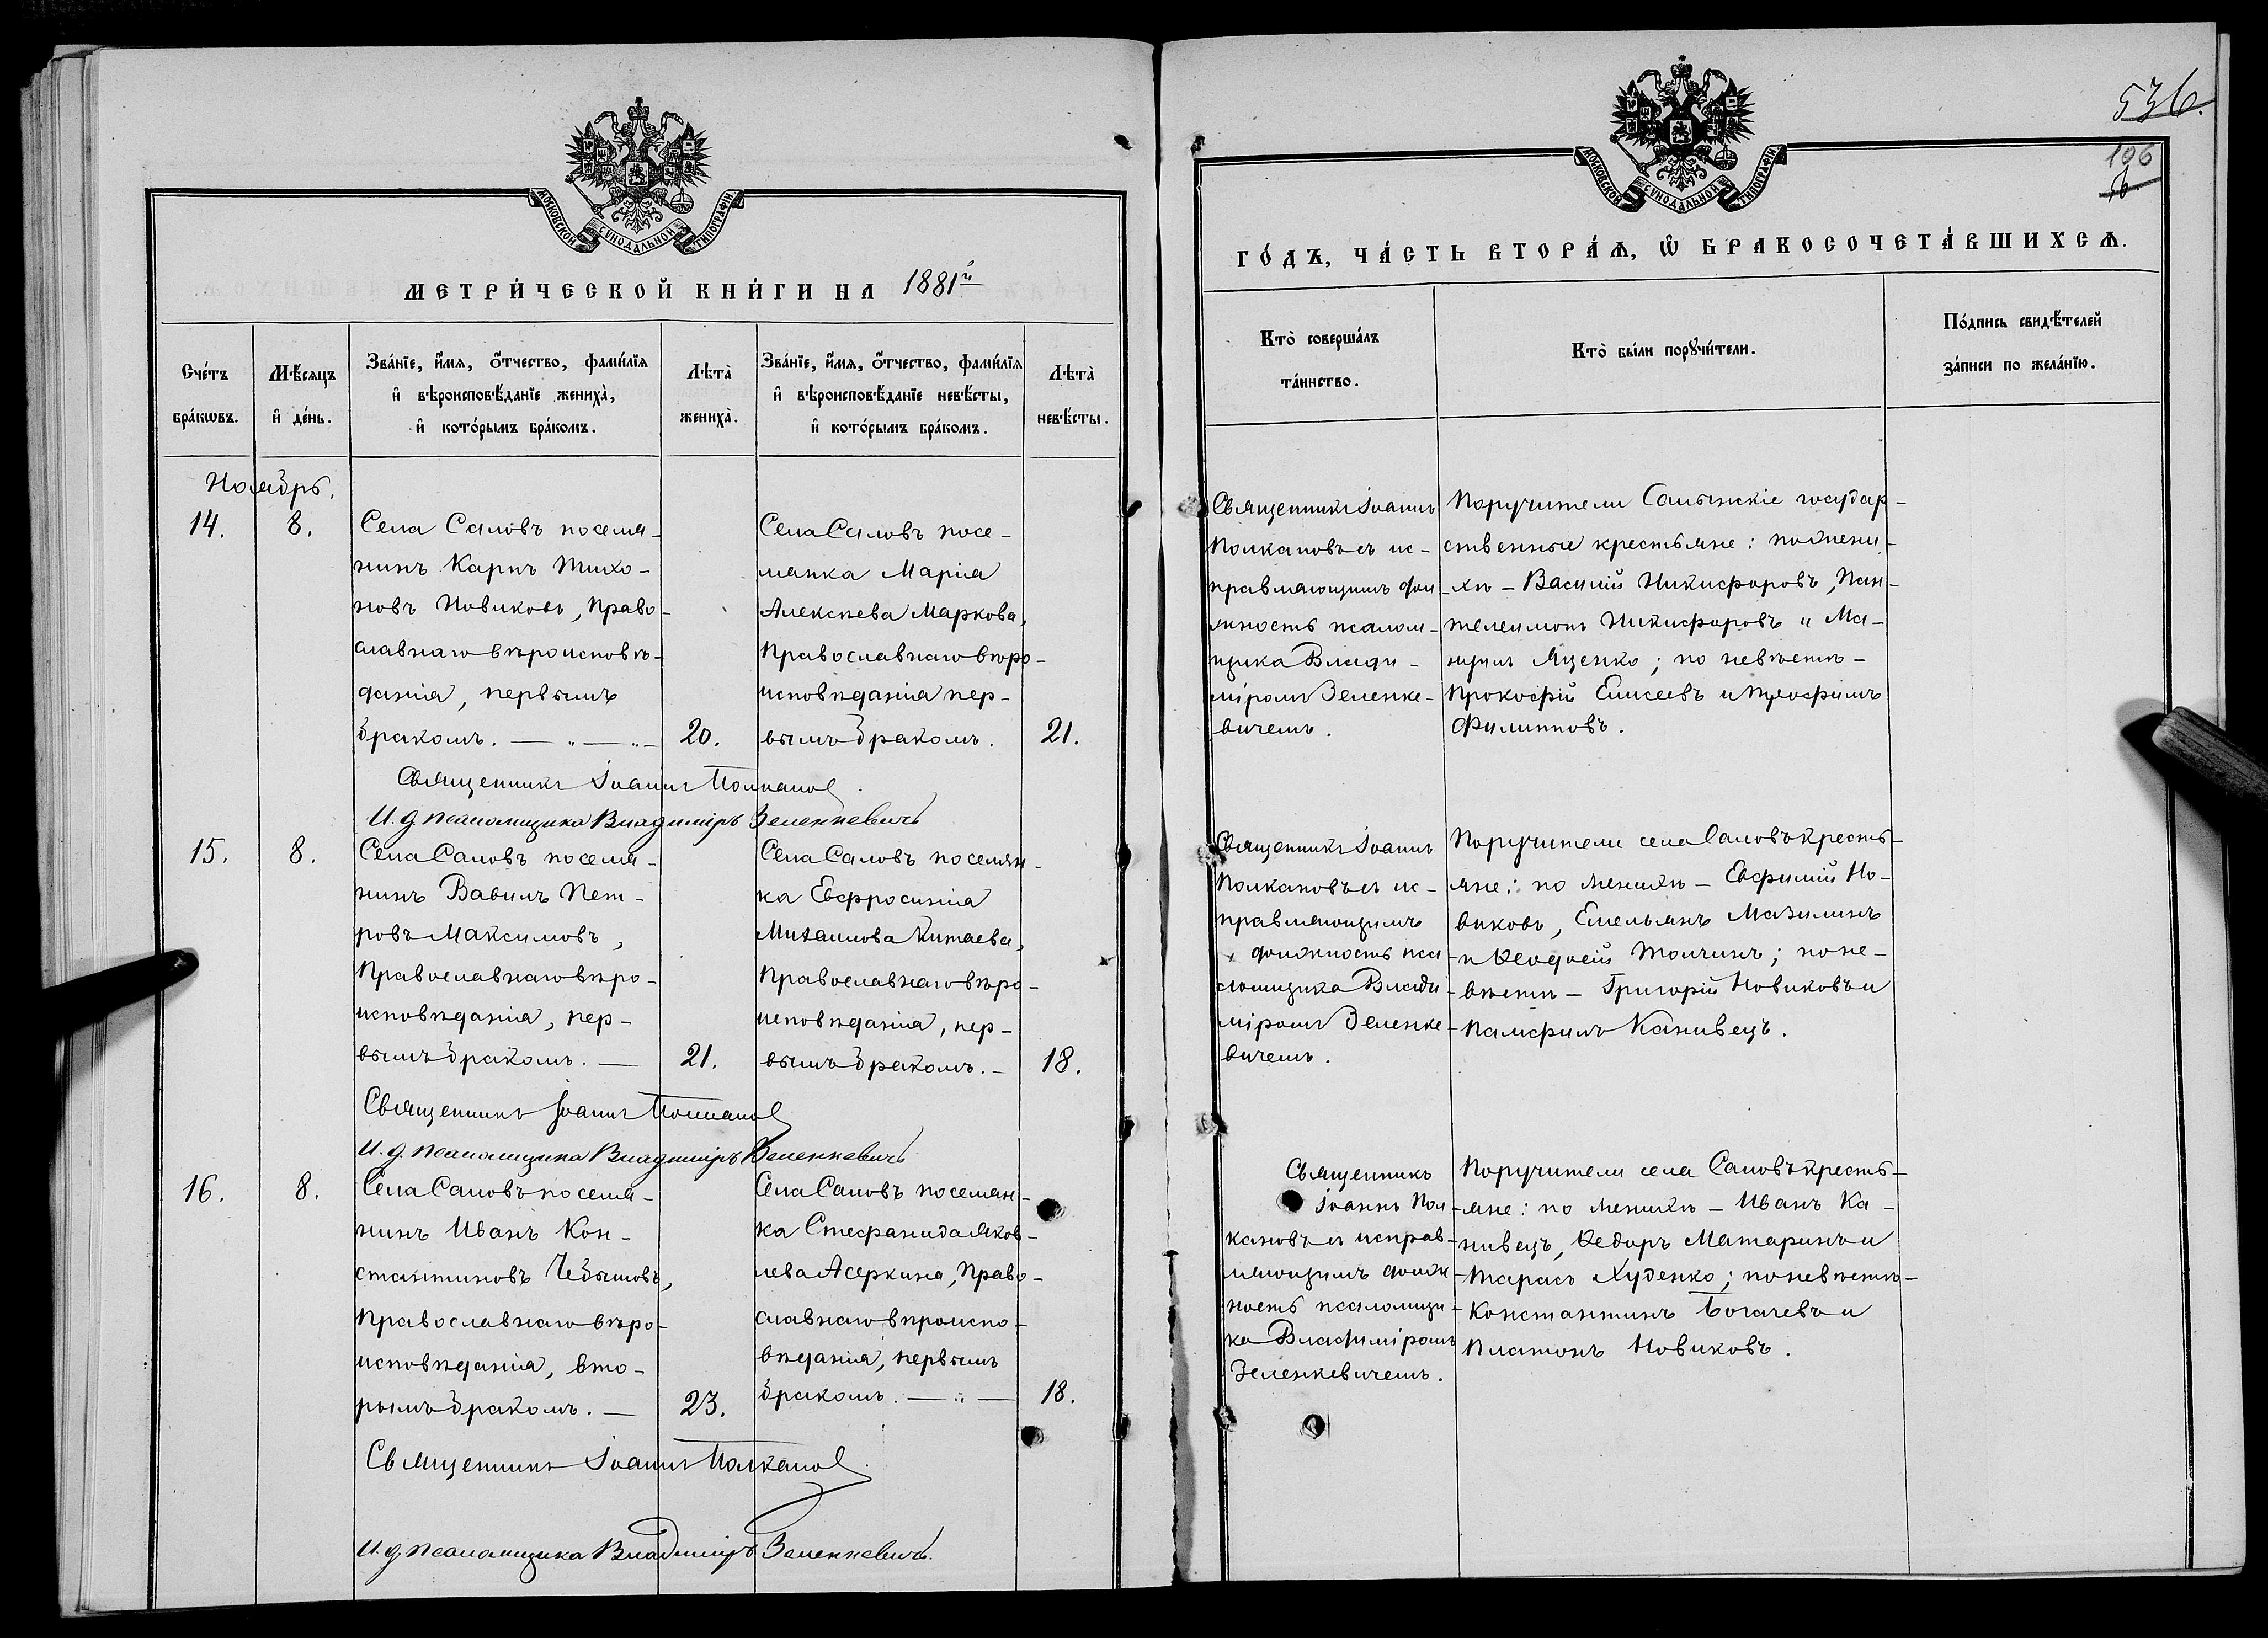 МОСКОВСКОЙ СѴНОДАЛЬНОЙ ТИПОГРАФІИ.
МЕТРИ́ЧЕСКОЙ КНИ́ГИ НА 1881й
Сче́тъ бра́кѡвъ.
Мѣ́сяцъ и҆ де́нь.
Зва́нїе, и҆́мя, ѻ҆́тчество, фами́лїя
и҆ вѣроисповѣ́данїе жениха̀,
и҆ кото́рымъ бра́комъ.
Лѣта̀ жениха̀.
Зва́нїе, и҆́мя, ѻ҆́тчество, фами́лїя
и҆ вѣроисповѣ́данїе невѣ́сты,
и҆ кото́рымъ бра́комъ.
Лѣта̀ невѣ́сты.
Ноябрь.
14.
8.
Села Саловъ поселя-
нинъ Карпъ Тихо-
новъ Новиковъ, Право-
славнаго вѣроисповѣ-
данія, первымъ
бракомъ. — „ — „ —
20.
Села Саловъ посе-
лянка Марія
Алексѣева Маркова,
Православнаго вѣро-
исповѣданія пер-
вымъ бракомъ.
21.
Священникъ Іоаннъ Полкановъ.
И. д. псаломщика Владиміръ Зеленкевичъ
15.
8.
Села Саловъ поселя-
нинъ Вавилъ Пет-
ровъ Максимовъ,
Православнаго вѣро-
исповѣданія, пер-
вымъ бракомъ. —
21.
Села Саловъ поселян-
ка Евфросинія
Михаилова Китаева,
Православнаго вѣро-
исповѣданія, пер-
вымъ бракомъ. —
18.
Священникъ Іоаннъ Полкановъ
И. д. псаломщика Владиміръ Зеленкевичъ
16.
8.
Села Саловъ поселя-
нинъ Иванъ Кон-
стантиновъ Чебышовъ,
Православнаго вѣро-
исповѣданія, вто-
рымъ бракомъ. —
23.
Села Саловъ поселян-
ка Стефанида Яков-
лева Асеркина, Право-
славнаго вѣроиспо-
вѣданія, первымъ
бракомъ. — „ —
18.
Священникъ Іоаннъ Полкановъ.
И. д. псаломщика Владиміръ Зеленкевичъ.
536.
МОСКОВСКОЙ СѴНОДАЛЬНОЙ ТИПОГРАФІИ.
106
ГО́ДЪ, ЧА́СТЬ ВТОРА́Ѧ, Ѡ҆ БРАКОСОЧЕТА́ВШИХСѦ.
Кто̀ соверша́лъ
та́инство.
Кто̀ бы́ли порꙋчи́тели.
По́дпись свидѣ́телей
за́писи по жела́нїю.
Священникъ Іоаннъ
Полкановъ съ ис-
правляющимъ дол-
жность псалом-
щика Влади-
міромъ Зеленке-
вичемъ.
Поручители Салынскіе государ-
ственные крестьяне: по жени-
хѣ — Василій Никифоровъ, Пан-
телеимонъ Никифоровъ и Ма-
нуилъ Яценко; по невѣстѣ —
Прокофій Елисеевъ и Трофимъ
Филипповъ.
Священникъ Іоаннъ
Полкановъ съ ис-
правляющимъ
должность пса-
ломщика Влади-
міромъ Зеленке-
вичемъ.
Поручители села Саловъ кресть-
яне: по женихѣ — Евфимій Но-
виковъ, Емельянъ Мазилинъ
и Ѳеодосій Толчинъ; по не-
вѣстѣ — Григорій Новиковъ и
Памфилъ Канивецъ.
Священникъ
Іоаннъ Пол-
кановъ съ исправ-
ляющимъ долж-
ность псаломщи-
ка Владиміромъ
Зеленкевичемъ.
Поручители села Саловъ кресть-
яне: по женихѣ — Иванъ Ка-
нивецъ, Ѳедоръ Матаринъ и
Тарасъ Худенко; по невѣстѣ —
Константинъ Богачевъ и
Платонъ Новиковъ.